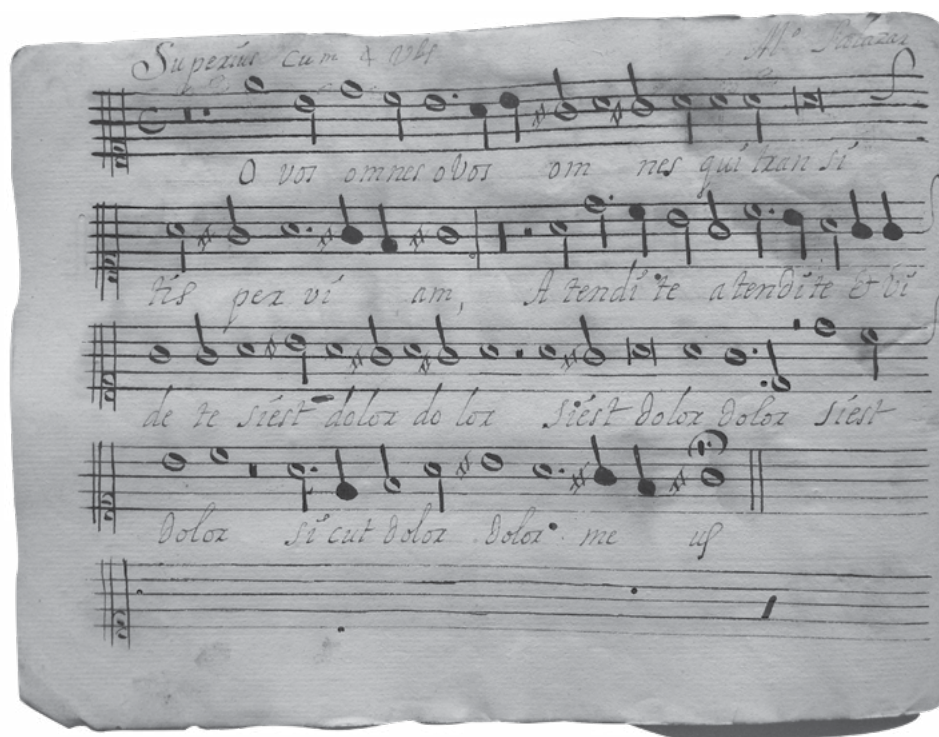 Superius Cum 4 Vbs Mº Salazar
O vos omnes o Vos om nes qui tran si
tis per vi am, A tendi te a tendite & vi
de te siest dolor do lor siest dolor dolor siest
dolor si cut dolor dolor me us